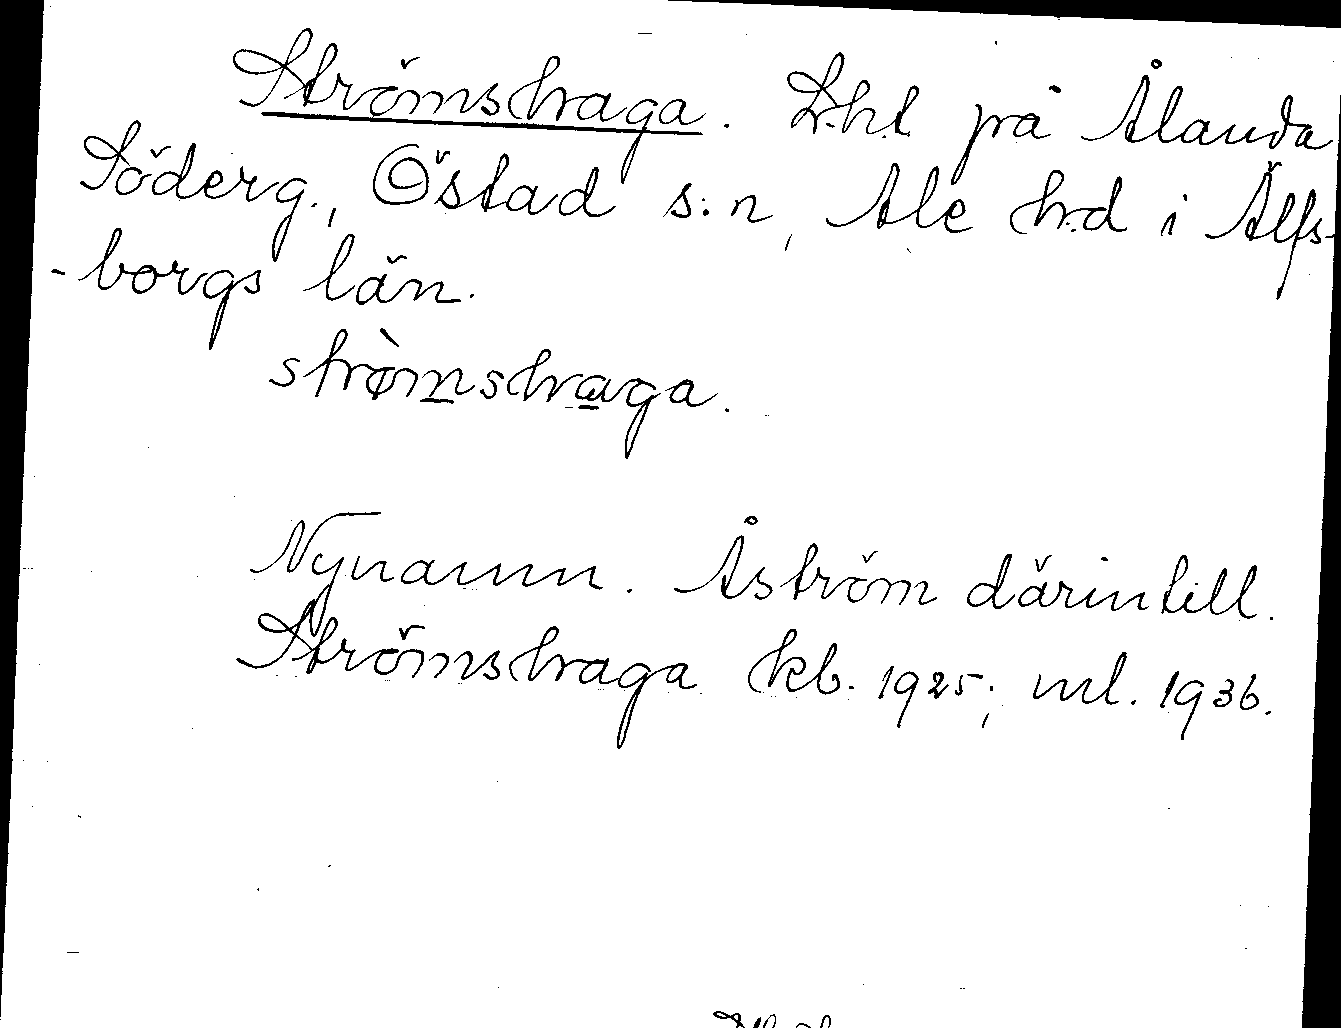 Strömshaga. L.hl på Ålanda
Söderg., Östad s:n, Ale h:d i Älfs-
-borgs län.
strø̀mshaga.
Nynamn. Åström därintill.
Strömshaga kb. 1925; ml. 1936.